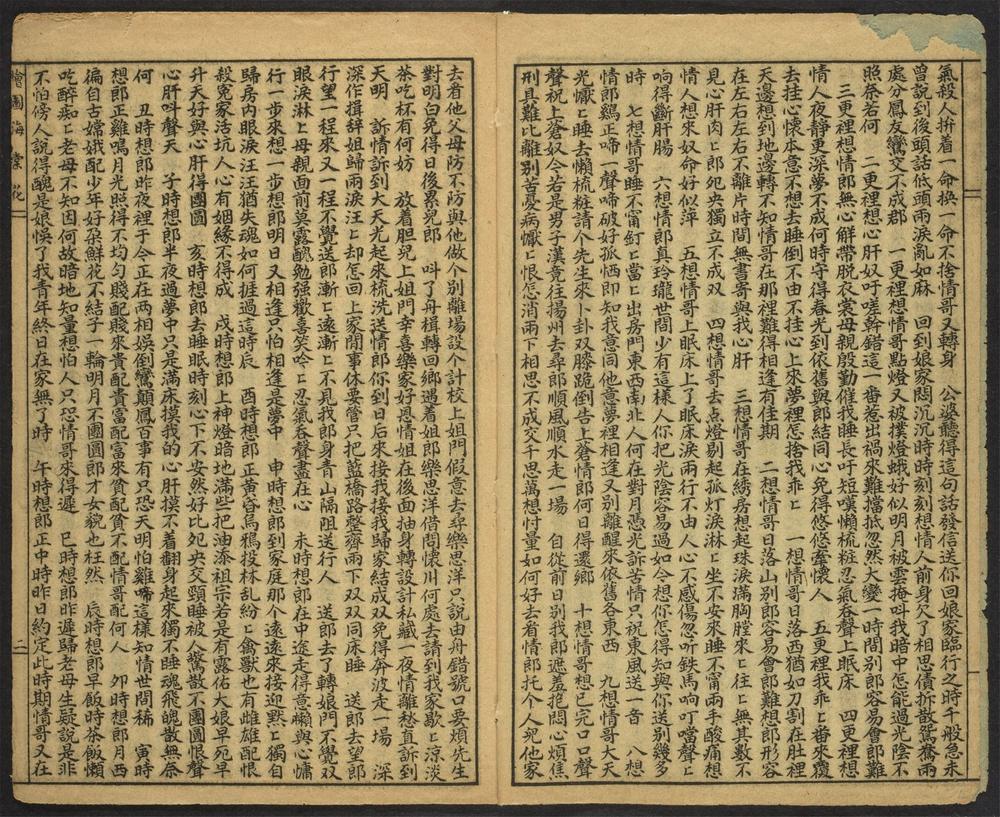 氣殺人拚着一命換一命不捨情哥又轉身　公婆聽得這句話發信送你回娘家臨行之時千般急未
曾說到後頭話低頭兩淚亂如麻　回到娘家悶沉沉時時刻刻想情人前身欠了相思債拆散鴛鴦兩
處分鳳友鸞交不成郡　一更裡想情哥點燈又被撲燈蛾好似明月被雲掩叫我暗中怎能過光陰不
照奈若何　二更裡想心肝奴吁嗟幹錯這一番惹出禍來難擋抵忽然大變一時間別郎容易會郎難
三更裡想情郎無心鮮帶脫衣裳母親殷勤催我睡長吁短嘆懶梳粧忍氣吞聲上眠床　四更裡想
情人夜靜更深夢不成何時守得春光到依舊與郎結同心免得悠悠牽懷人　五更裡我乖ㄈ番來覆
去挂心懷本意不想去睡倒不由不挂心上來夢裡怎捨我乖ㄈ　一想情哥日落西猶如刀割在肚裡
天邊想到地邊轉不知情哥在那裡難得相逢有佳期　二想情哥日落山別郎容易會郎難想郎形容
在左右左右不離片時間無書寄與我心肝　三想情哥在綉房想起珠淚滿胸膛來ㄈ往ㄈ無其數不
見心肝肉ㄈ郎夗央獨立不成双　四想情哥去点燈剔起孤灯淚淋ㄈ坐不安來睡不甯兩手酸痛想
情人想來奴命好似萍　五想情哥上眠床上了眠床淚兩行不由人心不感傷忽听鉄馬响叮噹聲ㄈ
响得斷肝腸　六想情郎真玲瓏世間少有這樣人你把光陰容易過如今想你怎得知與你送別幾多
時　七想情哥睡不甯釘ㄈ當ㄈ出房門東西南北人何在對月憑光訴苦情只祝東風送一音　八想
情郎鷄正啼一聲啼破好孤恓即知我意同他意夢裡相逢又別離醒來依舊各東西　九想情哥大天
光懨ㄈ睡去懶梳粧請个先生來卜卦双膝跪倒告上蒼情郎何日得還鄉　十想情哥想已完口口聲
聲祝上蒼奴今若是男子漢竟往揚州去尋郎順風順水走一場　自從前日別我郎遮羞抱悶心煩焦
刑具難比離別苦憂病懨ㄈ恨怎消兩下相思不成交千思萬想忖量如何好去看情郎托个人兒他家
去看他父母防不防與他做个別離場設个計校上姐門假意去尋樂思洋只說由舟錯號口要煩先生
對明白免得日後累兒郎　叫了舟楫轉回鄉過着姐郎樂思洋借問懷川何處去請到我家歇ㄈ涼淡
茶吃杯有何妨　放着胆兒上姐門幸喜樂家好恩情姐在後面抽身轉設計私藏一夜情離愁直訴到
天明　訴情訴到大天光起來梳洗送情郎你到日后來接我接我歸家結成双免得奔波走一場　深
深作揖辞姐歸兩淚汪ㄈ却怎回上家閒事休要管只把藍橋路整齊兩下双双同床睡　送郎去望郎
行望一程來又一程不覺送郎漸ㄈ遠漸ㄈ不見我郎身青山隔阻送行人　送郎去了轉娘門不覺双
眼淚淋ㄈ母親面前莫露醜勉强歡喜笑吟ㄈ忍氣吞聲盡在心　未時想郎在中途走得意懶與心慵
行一步來想一步想郎明日又相逢只怕相逢是夢中　申時想郎到家庭那个遠遠來接迎黙ㄈ獨自
歸房內眼淚汪汪猶失魂如何捱過這時辰　酉時想郎正黄昏烏鴉投林乱紛ㄈ禽獸也有雌雄配恨
殺冤家活坑人心有姻緣不得成　戌時想郎上神燈暗地滿些把油添祖宗若是有露佑大娘早死早
升天好與心肝得團圓　亥時想郎去睡眠時刻心下不安然好比夗央交頸睡被人驚散不團圓恨聲
心肝叫聲天　子時想郎半夜過夢中只是滿床摸我的心肝摸不着翻身起來獨不睡魂飛魄散無奈
何　丑時想郎昨夜裡于今正在两相娛倒鸞顛鳳百事有只恐天明怕雞啼這樣知情世間稀　寅時
想郎正雞鳴月光照得不均匀賤配賤來貴配貴富配富來貧配貧不配情哥配何人　卯時想郎月西
徧自古嫦娥配少年好朶鮮花不結子一輪明月不團圓郎才女貌也枉然　辰時想郎早飯時茶飯懶
吃醉痴ㄈ老母不知因何故暗地知量想怕人只恐情哥來得遲　巳時想郎昨遲歸老母生疑說是非
不怕傍人說得醜是娘悞了我青年終日在家無了時　午時想郎正中時昨日約定此時期情哥又在
繪圖海棠花
二